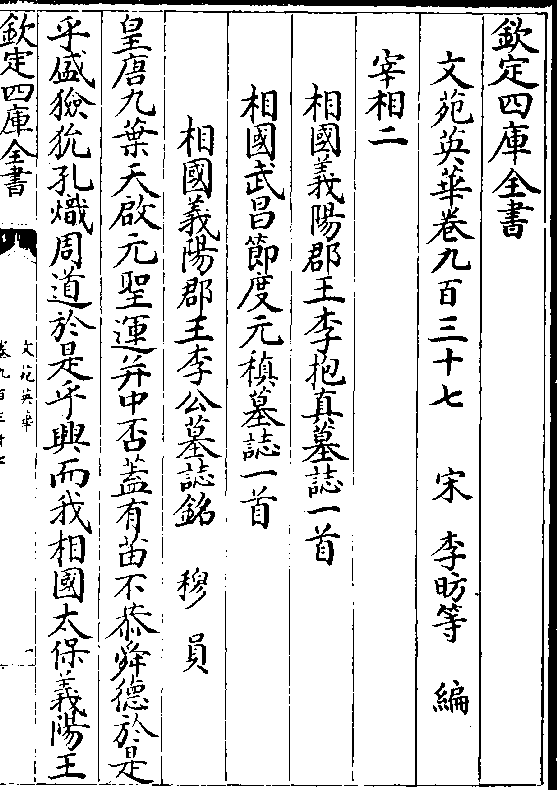 欽定四庫全書
文苑英華卷九百三十七　宋　李昉等　編
宰相二
相國義陽郡王李抱真墓誌一首
相國武昌節度元稹墓誌一首
相國義陽郡王李公墓誌銘　穆員
皇唐九葉天啟元聖運并中否蓋有苗不恭舜德於是
乎盛獫狁孔熾周道於是乎興而我相國太保義陽王
欽定四庫全書
文苑英華
卷九百三十七
一